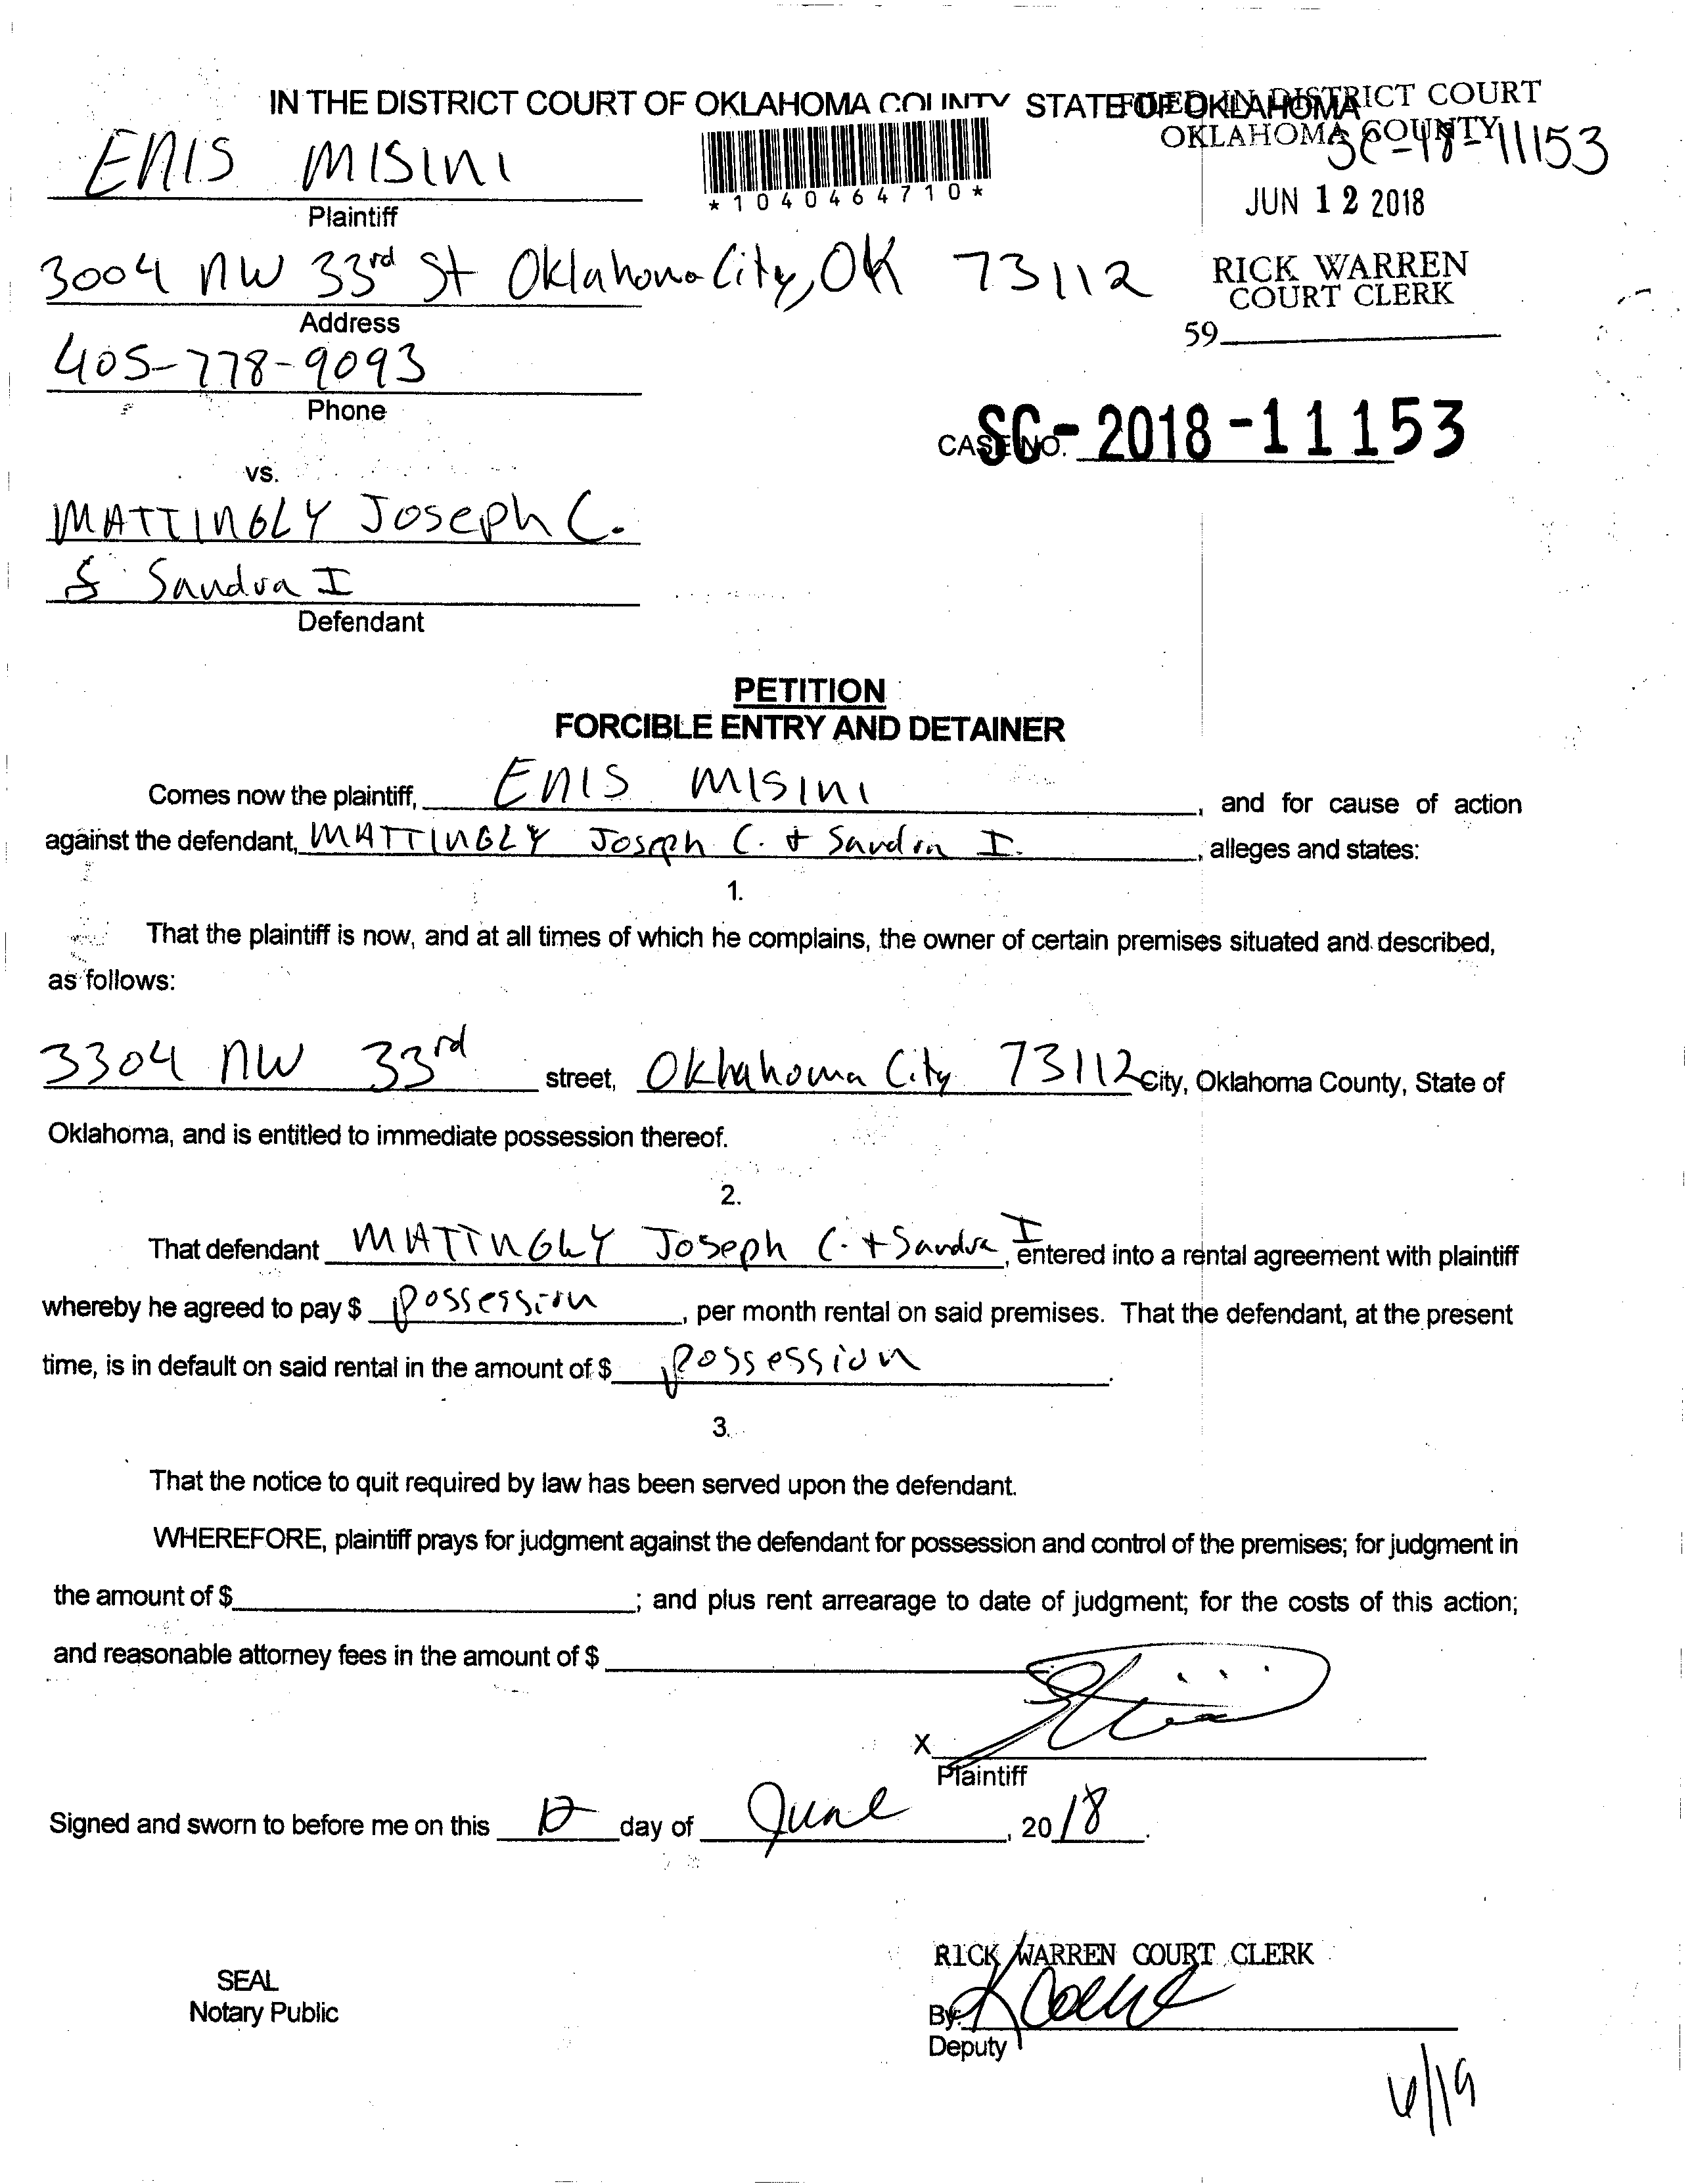 IN THE DISTRICT COURT OF OKLAHOMA COUNTY STATE OF OKLAHOMA
FILED IN DISTRICT COURT
OKLAHOMA COUNTY
SC-18-11153
ENIS MISINI
*1040464710*
Plaintiff
JUN 12 2018
3004 NW 33rd St Oklahoma City, OK 73112
RICK WARREN
COURT CLERK
Address
59
405-778-9093
Phone
CASE NO. SC-2018-11153
vs.
MATTINGLY Joseph C.
& Sandra I
Defendant
PETITION
FORCIBLE ENTRY AND DETAINER
Comes now the plaintiff, ENIS MISINI, and for cause of action
against the defendant, MATTINGLY Joseph C. + Sandra I., alleges and states:
1.
That the plaintiff is now, and at all times of which he complains, the owner of certain premises situated and described,
as follows:
3304 NW 33rd street, Oklahoma City 73112 City, Oklahoma County, State of
Oklahoma, and is entitled to immediate possession thereof.
2.
That defendant MATTINGLY Joseph C. + Sandra I, entered into a rental agreement with plaintiff
whereby he agreed to pay $ possession, per month rental on said premises. That the defendant, at the present
time, is in default on said rental in the amount of $ possession.
3.
That the notice to quit required by law has been served upon the defendant.
WHEREFORE, plaintiff prays for judgment against the defendant for possession and control of the premises; for judgment in
the amount of $ ; and plus rent arrearage to date of judgment; for the costs of this action;
and reasonable attorney fees in the amount of $
X
Plaintiff
Signed and sworn to before me on this 12 day of June, 2018.
RICK WARREN COURT CLERK
SEAL
Notary Public
By:
Deputy
6/19